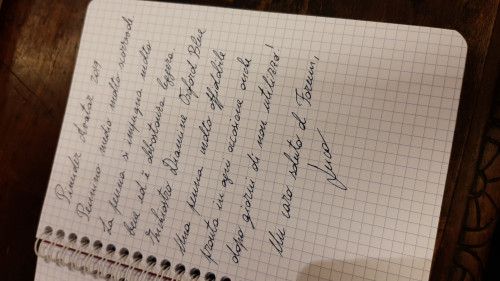 Pineider Avatar 2019
Pennino medio molto scorrevole
La penna si impugna molto
bene ed è abbastanza leggera.
Inchiostro Diamine Oxford Blue
Una penna molto affidabile
pronta in ogni occasione anche
dopo giorni di non utilizzo!
Un caro saluto al Forum,
Luca